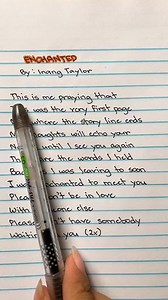 ENCHANTED
By: Inang Taylor
This is me praying that
was the very first page
where the story line ends
thoughts will echo your
until I see you again
are the words I held
I was leaving to soon
enchanted to meet you
be in love
else
have somebody
you (2x)